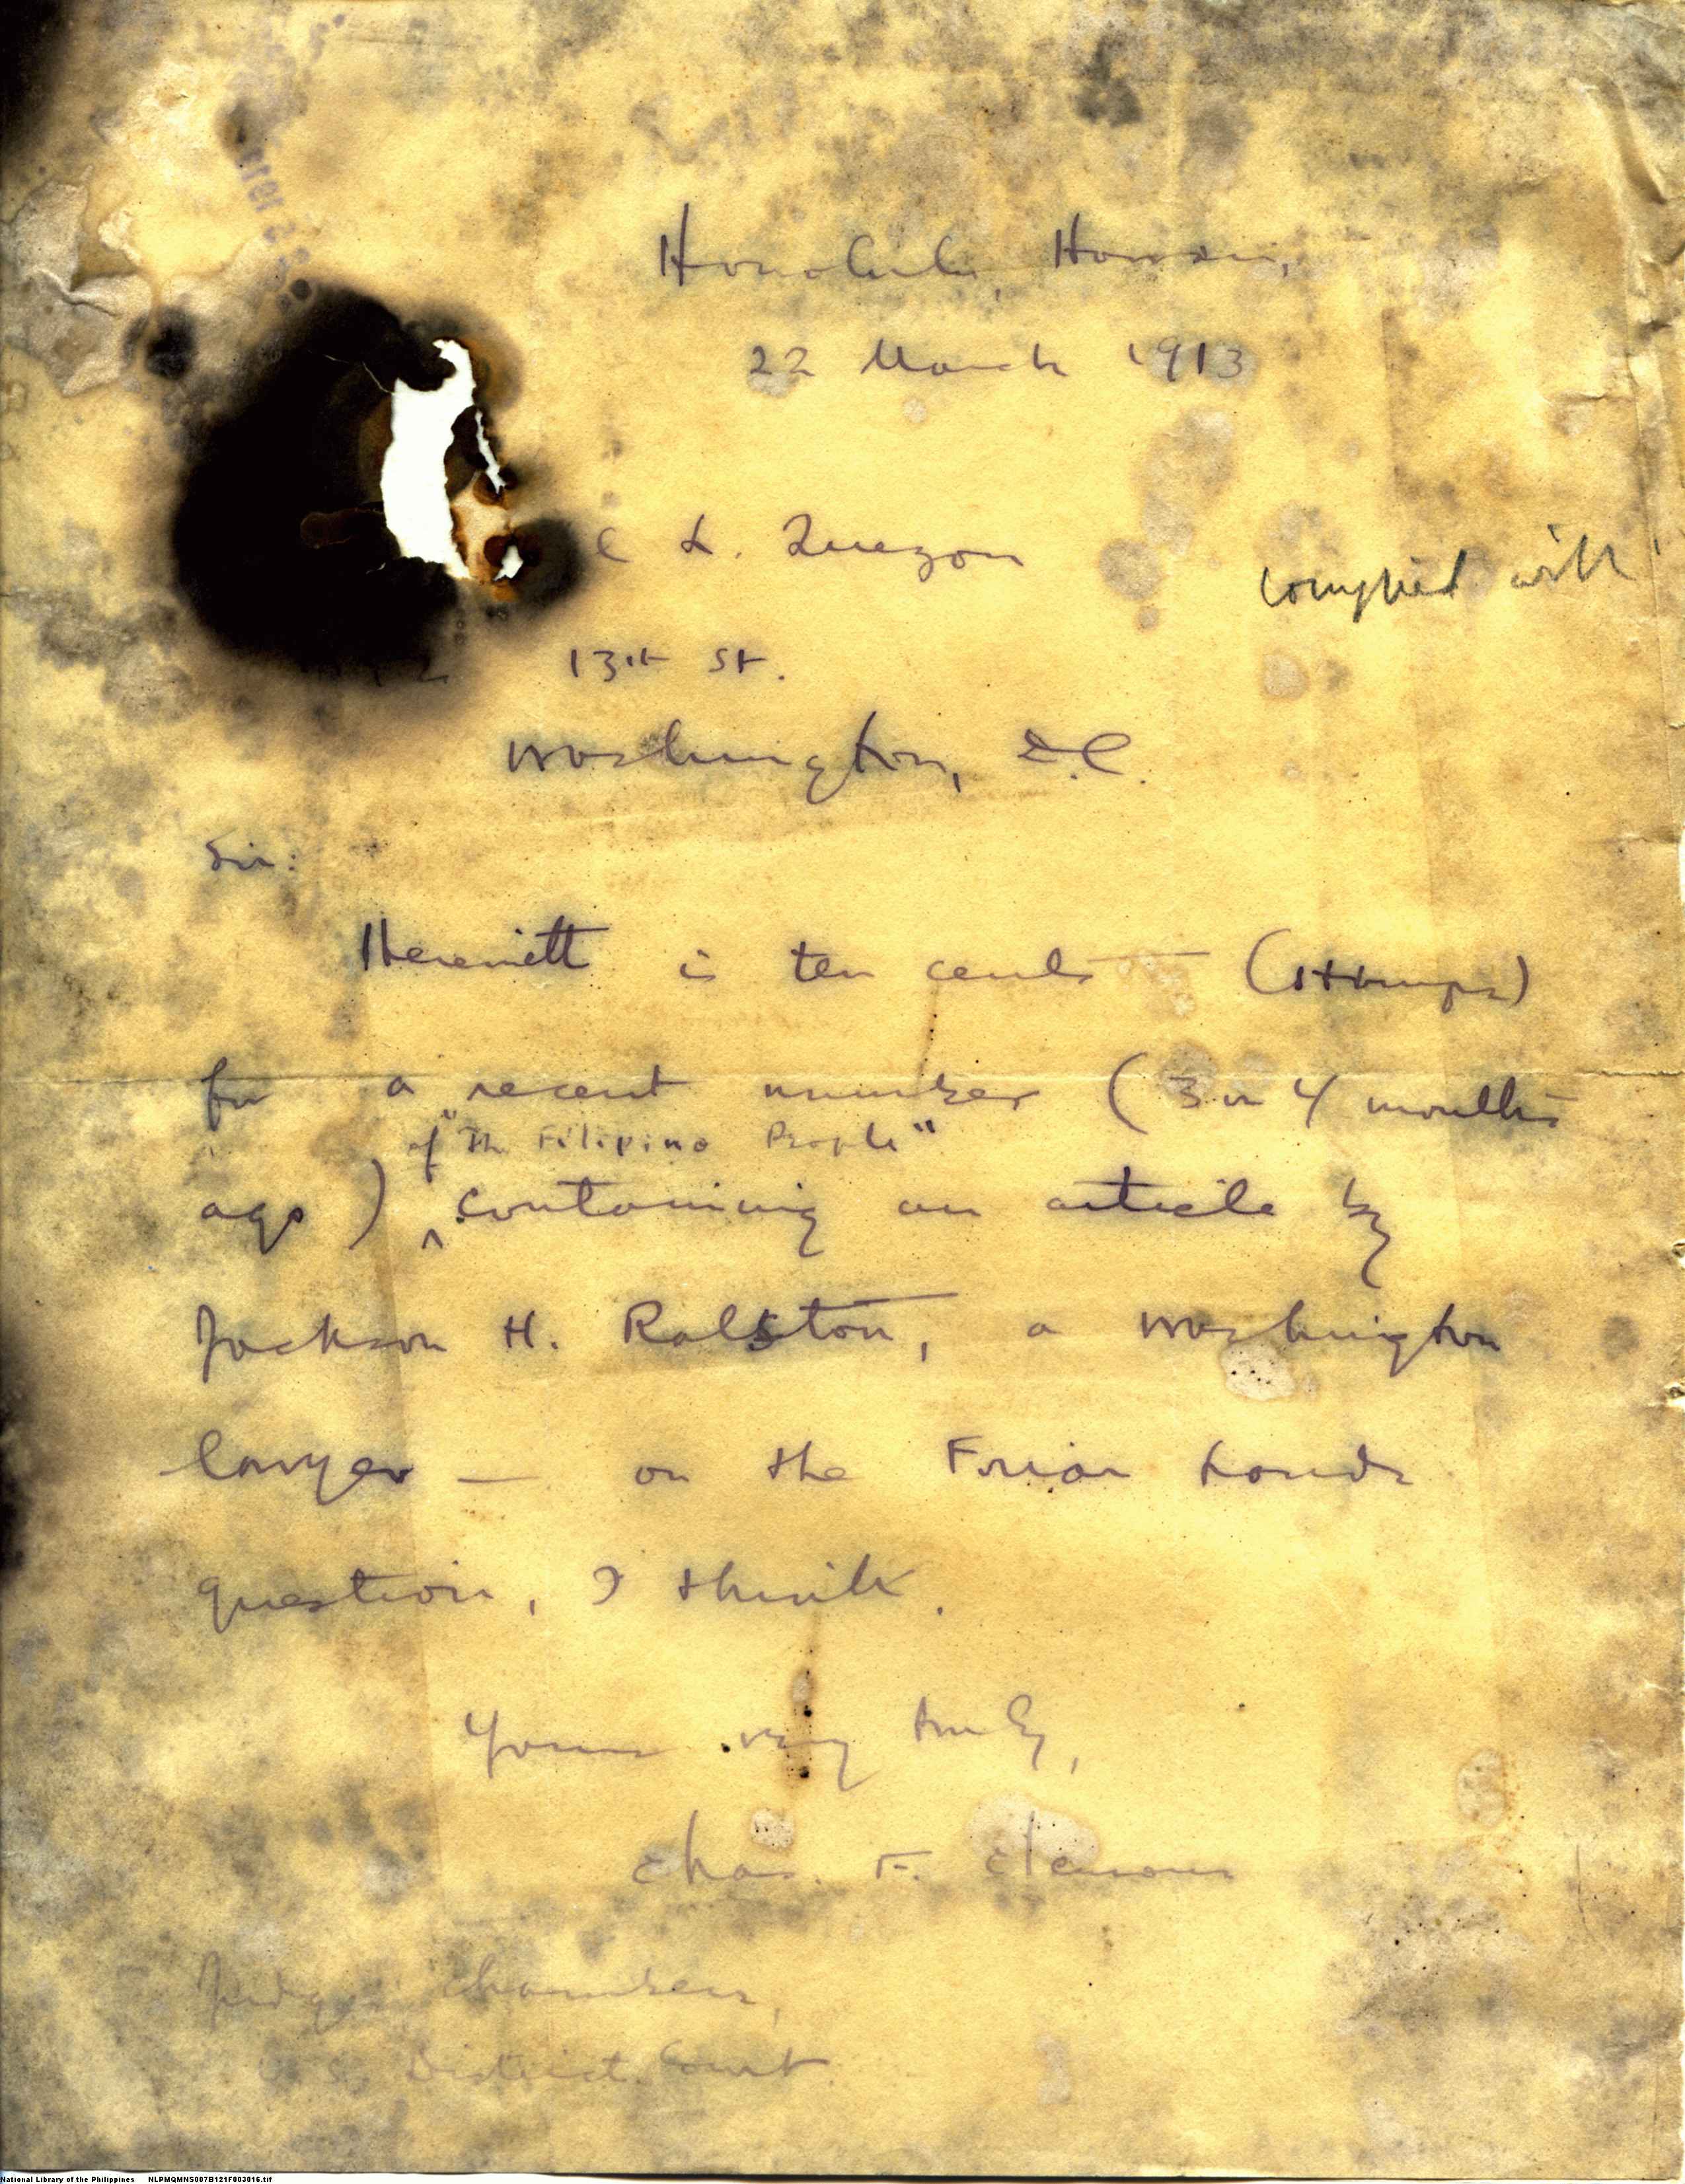 Honolulu, Hawaii,
22 March 1913
L. Quezon
complied with
13th St.
Washington, D.C.
Sir:
Herewith is ten cents — (stamps)
for a recent number (3 or 4 months
of "The Filipino People"
ago) ^ containing an article by
Jackson H. Ralston, a Washington
lawyer — on the Friar Lands
question, I think.
Yours very truly,
Chas. F. Clemons
Judge's Chambers,
U.S. District Court.
National Library of the Philippines NLPMQMNS007B121F003016.tif